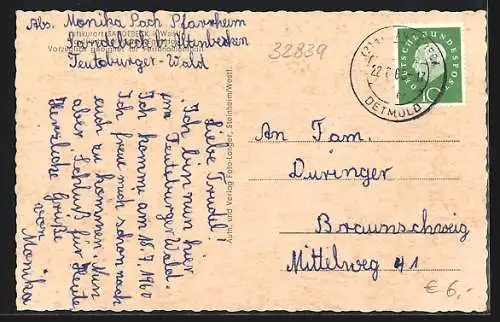 Abs. Monika Pach Pfarrheim
Sandebeck b. Altenbeken
Teutoburger-Wald
Luftkurort SANDEBECK
32839
22.
DETMOLD
DEUTSCHE BUNDESPOST
10
Liebe Trudel!
Ich bin nun hier
im Teutoburger Wald.
Ich komme am 18.7.1960
Ich freue mich schon nach
euch zu kommen. Nun
aber Schluß für heute
Herzliche Grüße
von
Monika
Auth. und Verlag Foto-Langer, Steinheim/Westf.
An Fam.
Düringer
Braunschweig
Mittelweg 41
€ 6,-